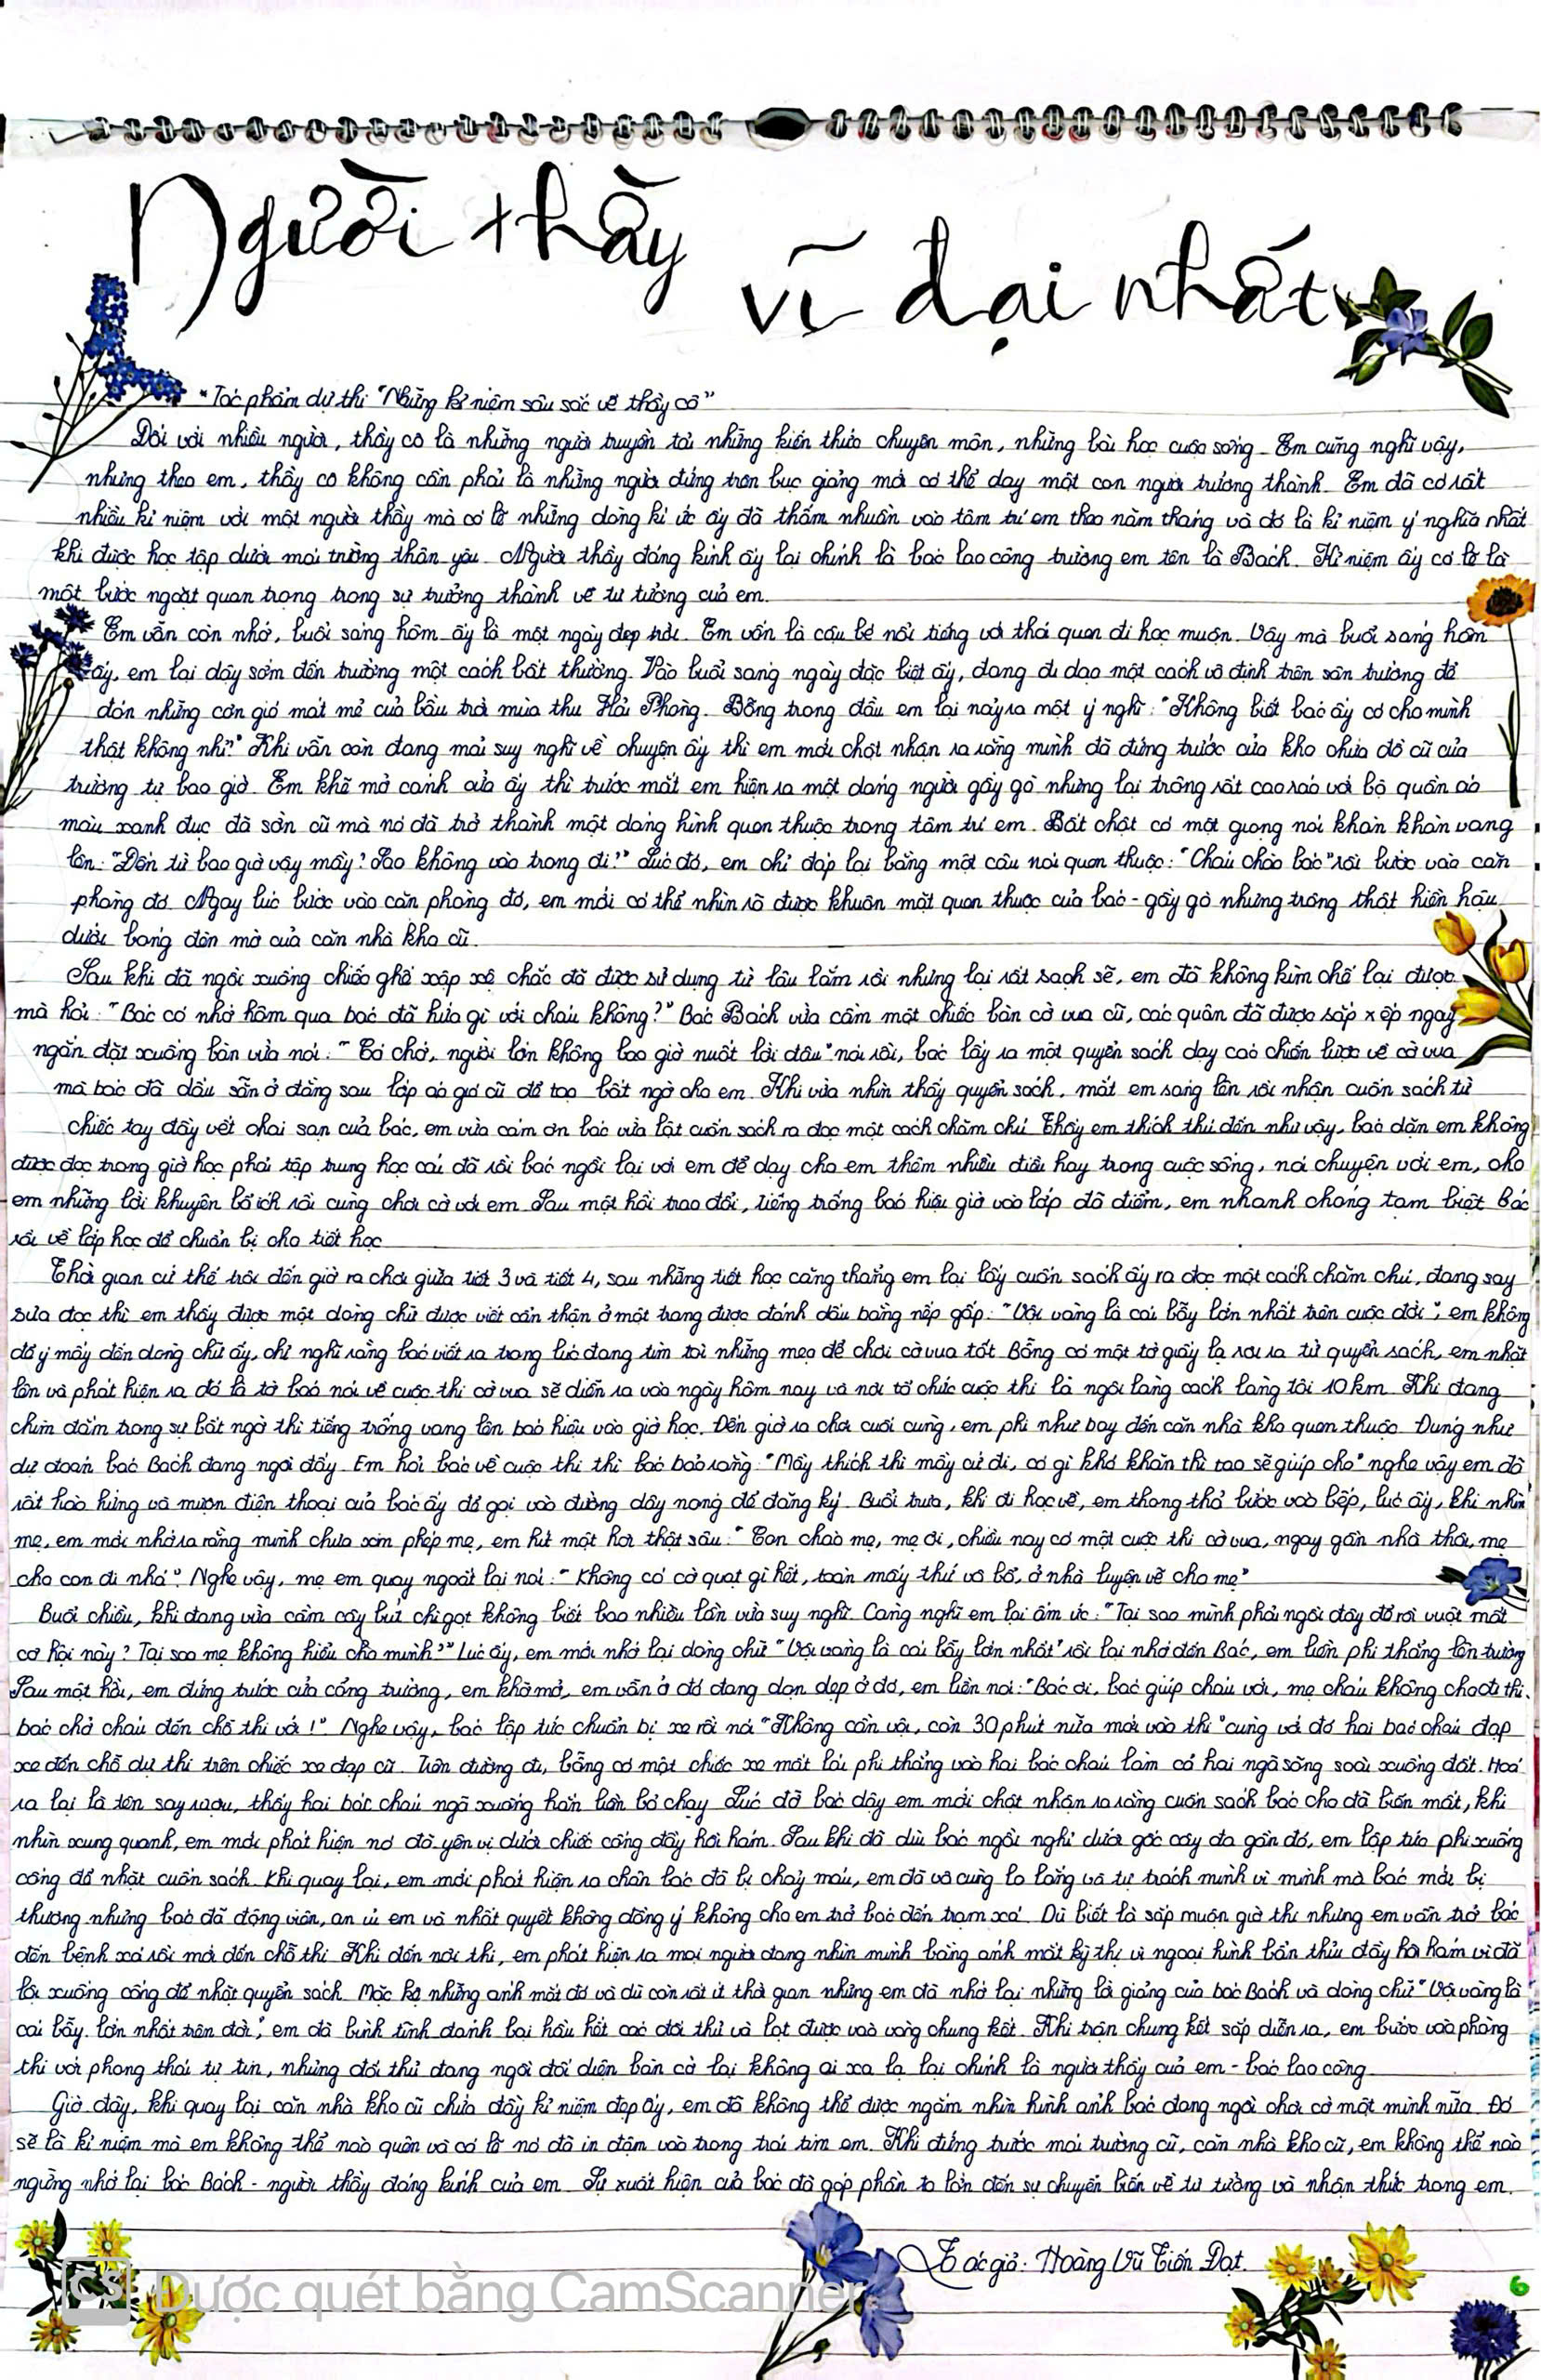 Người thầy
vĩ đại nhất
"Tác phẩm dự thi "Những kỉ niệm sâu sắc về thầy cô"
Đối với nhiều người, thầy cô là những người truyền tải những kiến thức chuyên môn, những bài học cuộc sống. Em cũng nghĩ vậy,
nhưng theo em, thầy cô không cần phải là những người đứng trên bục giảng mới có thể dạy một con người trưởng thành. Em đã có rất
nhiều kỉ niệm với một người thầy mà có lẽ những dòng kí ức ấy đã thấm nhuần vào tâm trí em theo năm tháng và đó là kỉ niệm ý nghĩa nhất
khi được học tập dưới mái trường thân yêu. Người thầy đáng kính ấy lại chính là bác lao công trường em tên là Bách. Kỉ niệm ấy có lẽ là
một bước ngoặt quan trọng trong sự trưởng thành về tư tưởng của em.
Em vẫn còn nhớ, buổi sáng hôm ấy là một ngày đẹp trời. Em vốn là cậu bé nổi tiếng với thói quen đi học muộn. Vậy mà buổi sáng hôm
ấy, em lại dậy sớm đến trường một cách bất thường. Vào buổi sáng ngày đặc biệt ấy, đang đi dạo một cách vô định trên sân trường để
đón những cơn gió mát mẻ của bầu trời mùa thu Hải Phòng. Bỗng trong đầu em lại nảy ra một ý nghĩ: "Không biết bác ấy có cho mình
thật không nhỉ?" Khi vẫn còn đang mải suy nghĩ về chuyện ấy thì em mới chợt nhận ra rằng mình đã đứng trước cửa kho chứa đồ cũ của
trường tự bao giờ. Em khẽ mở cánh cửa ấy thì trước mắt em hiện ra một dáng người gầy gò nhưng lại trông rất cao ráo với bộ quần áo
màu xanh đục đã sờn cũ mà nó đã trở thành một dáng hình quen thuộc trong tâm trí em. Bất chợt có một giọng nói khàn khàn vang
lên: "Đến từ bao giờ vậy mầy? Sao không vào trong đi?" Lúc đó, em chỉ đáp lại bằng một câu nói quen thuộc: "Cháu chào bác" rồi bước vào căn
phòng đó. Ngay lúc bước vào căn phòng đó, em mới có thể nhìn rõ được khuôn mặt quen thuộc của bác - gầy gò nhưng trông thật hiền hậu
dưới bóng đèn mờ của căn nhà kho cũ.
Sau khi đã ngồi xuống chiếc ghế xập xệ chắc đã được sử dụng từ lâu lắm rồi nhưng lại rất sạch sẽ, em đã không kìm chế lại được
mà hỏi: "Bác có nhớ hôm qua bác đã hứa gì với cháu không?" Bác Bách vừa cầm một chiếc bàn cờ vua cũ, các quân đã được sắp xếp ngay
ngắn đặt xuống bàn vừa nói: "Có chớ, người lớn không bao giờ nuốt lời đâu" nói rồi, bác lấy ra một quyển sách dạy các chiến lược về cờ vua
mà bác đã dấu sẵn ở đằng sau lớp áo gió cũ để tạo bất ngờ cho em. Khi vừa nhìn thấy quyển sách, mắt em sáng lên rồi nhận cuốn sách từ
chiếc tay đầy vết chai sạn của bác, em vừa cảm ơn bác vừa lật cuốn sách ra đọc một cách chăm chú. Thấy em thích thú đến như vậy, bác dặn em không
được đọc trong giờ học phải tập trung học cái đã rồi bác ngồi lại với em để dạy cho em thêm nhiều điều hay trong cuộc sống, nói chuyện với em, cho
em những lời khuyên bổ ích rồi cùng chơi cờ với em. Sau một hồi trao đổi, tiếng trống báo hiệu giờ vào lớp đã điểm, em nhanh chóng tạm biệt bác
rồi về lớp học để chuẩn bị cho tiết học
Thời gian cứ thế trôi đến giờ ra chơi giữa tiết 3 và tiết 4, sau những tiết học căng thẳng em lại lấy cuốn sách ấy ra đọc một cách chăm chú, đang say
sưa đọc thì em thấy được một dòng chữ được viết cẩn thận ở một trang được đánh dấu bằng nếp gấp: "Vội vàng là cái bẫy lớn nhất trên cuộc đời", em không
để ý mấy đến dòng chữ ấy, chỉ nghĩ rằng bác viết ra trong lúc đang tìm tòi những mẹo để chơi cờ vua tốt. Bỗng có một tờ giấy lạ rơi ra từ quyển sách, em nhặt
lên và phát hiện ra đó là tờ báo nói về cuộc thi cờ vua sẽ diễn ra vào ngày hôm nay và nơi tổ chức cuộc thi là ngôi làng cách làng tôi 10 km. Khi đang
chìm đắm trong sự bất ngờ thì tiếng trống vang lên báo hiệu vào giờ học. Đến giờ ra chơi cuối cùng, em phi như bay đến căn nhà kho quen thuộc. Đúng như
dự đoán bác Bách đang ngồi đấy. Em hỏi bác về cuộc thi thì bác bảo rằng: "Mầy thích thì mầy cứ đi, có gì khó khăn thì tao sẽ giúp cho" nghe vậy em đã
rất hào hứng và mượn điện thoại của bác ấy để gọi vào đường dây nóng để đăng ký. Buổi trưa, khi đi học về, em thong thả bước vào bếp, lúc ấy, khi nhìn
mẹ, em mới nhớ ra rằng mình chưa xin phép mẹ, em hít một hơi thật sâu: "Con chào mẹ, mẹ ơi, chiều nay có một cuộc thi cờ vua, ngay gần nhà thôi, mẹ
cho con đi nhá". Nghe vậy, mẹ em quay ngoắt lại nói: "Không có cờ quạt gì hết, toàn mấy thứ vô bổ, ở nhà luyện vẽ cho mẹ"
Buổi chiều, khi đang vừa cầm cây bút chì gọt không biết bao nhiêu lần vừa suy nghĩ. Càng nghĩ em lại ấm ức: "Tại sao mình phải ngồi đây để rồi vuột mất
cơ hội này? Tại sao mẹ không hiểu cho mình?" Lúc ấy, em mới nhớ lại dòng chữ "Vội vàng là cái bẫy lớn nhất" rồi lại nhớ đến Bác, em liền phi thẳng lên trường
Sau một hồi, em đứng trước cửa cổng trường, em khẽ mở, em vẫn ở đó đang dọn dẹp ở đó, em liền nói: "Bác ơi, bác giúp cháu với, mẹ cháu không cho đi thi,
bác chở cháu đến chỗ thi với!". Nghe vậy, bác lập tức chuẩn bị xe rồi nói "Không cần vội, còn 30 phút nữa mới vào thi" cùng với đó hai bác cháu đạp
xe đến chỗ dự thi trên chiếc xe đạp cũ. Trên đường đi, bỗng có một chiếc xe mất lái phi thẳng vào hai bác cháu làm cả hai ngã sõng soài xuống đất. Hoá
ra lại là tên say rượu, thấy hai bác cháu ngã xuống hắn liền bỏ chạy. Lúc đỡ bác dậy em mới chợt nhận ra rằng cuốn sách bác cho đã biến mất, khi
nhìn xung quanh, em mới phát hiện nó đã yên vị dưới chiếc cống đầy hôi hám. Sau khi đã dìu bác ngồi nghỉ dưới gốc cây đa gần đó, em lập tức phi xuống
cống để nhặt cuốn sách. Khi quay lại, em mới phát hiện ra chân bác đã bị chảy máu, em đã vô cùng lo lắng và tự trách mình vì mình mà bác mới bị
thương nhưng bác đã động viên, an ủi em và nhất quyết không đồng ý không cho em trở bác đến trạm xá. Dù biết là sắp muộn giờ thi nhưng em vẫn trở bác
đến bệnh xá rồi mới đến chỗ thi. Khi đến nơi thi, em phát hiện ra mọi người đang nhìn mình bằng ánh mắt kỳ thị vì ngoại hình bẩn thỉu đầy hôi hám vì đã
lội xuống cống để nhặt quyển sách. Mặc kệ những ánh mắt đó và dù còn rất ít thời gian nhưng em đã nhớ lại những lời giảng của bác Bách và dòng chữ "Vội vàng là
cái bẫy lớn nhất trên đời", em đã bình tĩnh đánh bại hầu hết các đối thủ và lọt được vào vòng chung kết. Khi trận chung kết sắp diễn ra, em bước vào phòng
thi với phong thái tự tin, nhưng đối thủ đang ngồi đối diện bàn cờ lại không ai xa lạ lại chính là người thầy của em - bác lao công.
Giờ đây, khi quay lại căn nhà kho cũ chứa đầy kỉ niệm đẹp ấy, em đã không thể được ngắm nhìn hình ảnh bác đang ngồi chơi cờ một mình nữa. Đó
sẽ là kỉ niệm mà em không thể nào quên và có lẽ nó đã in đậm vào trong trái tim em. Khi đứng trước mái trường cũ, căn nhà kho cũ, em không thể nào
ngừng nhớ lại bác Bách - người thầy đáng kính của em. Sự xuất hiện của bác đã góp phần to lớn đến sự chuyển biến về tư tưởng và nhận thức trong em.
Tác giả: Hoàng Vũ Tiến Đạt.
6
CS Được quét bằng CamScanner